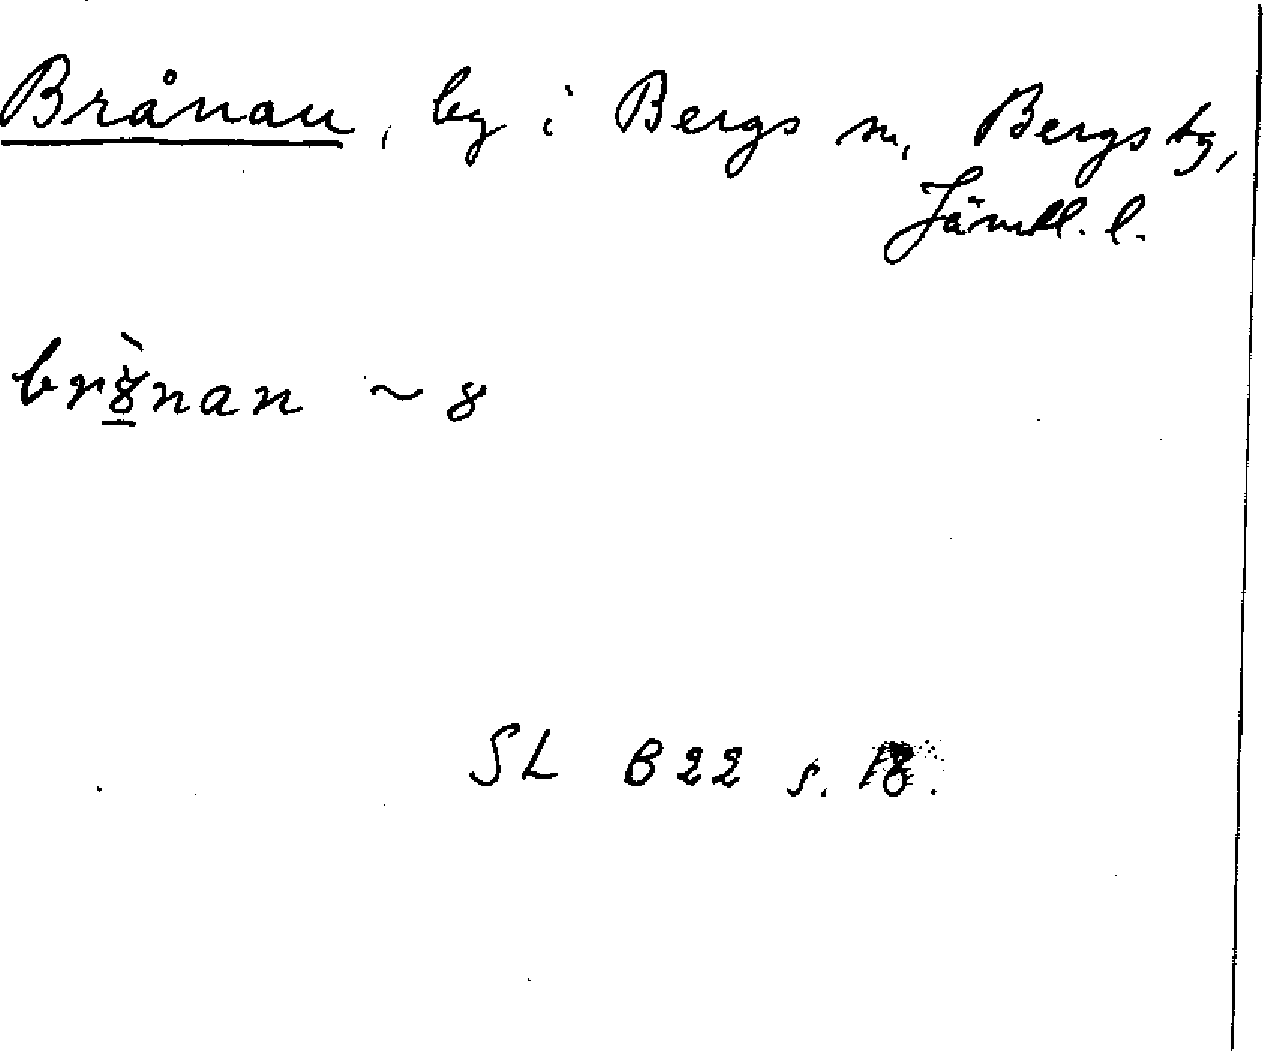 Brånan, by i Bergs sn, Bergs tg,
Jämtl. l.
br8̠̀nan ~ 8
SL B22 s. 18.